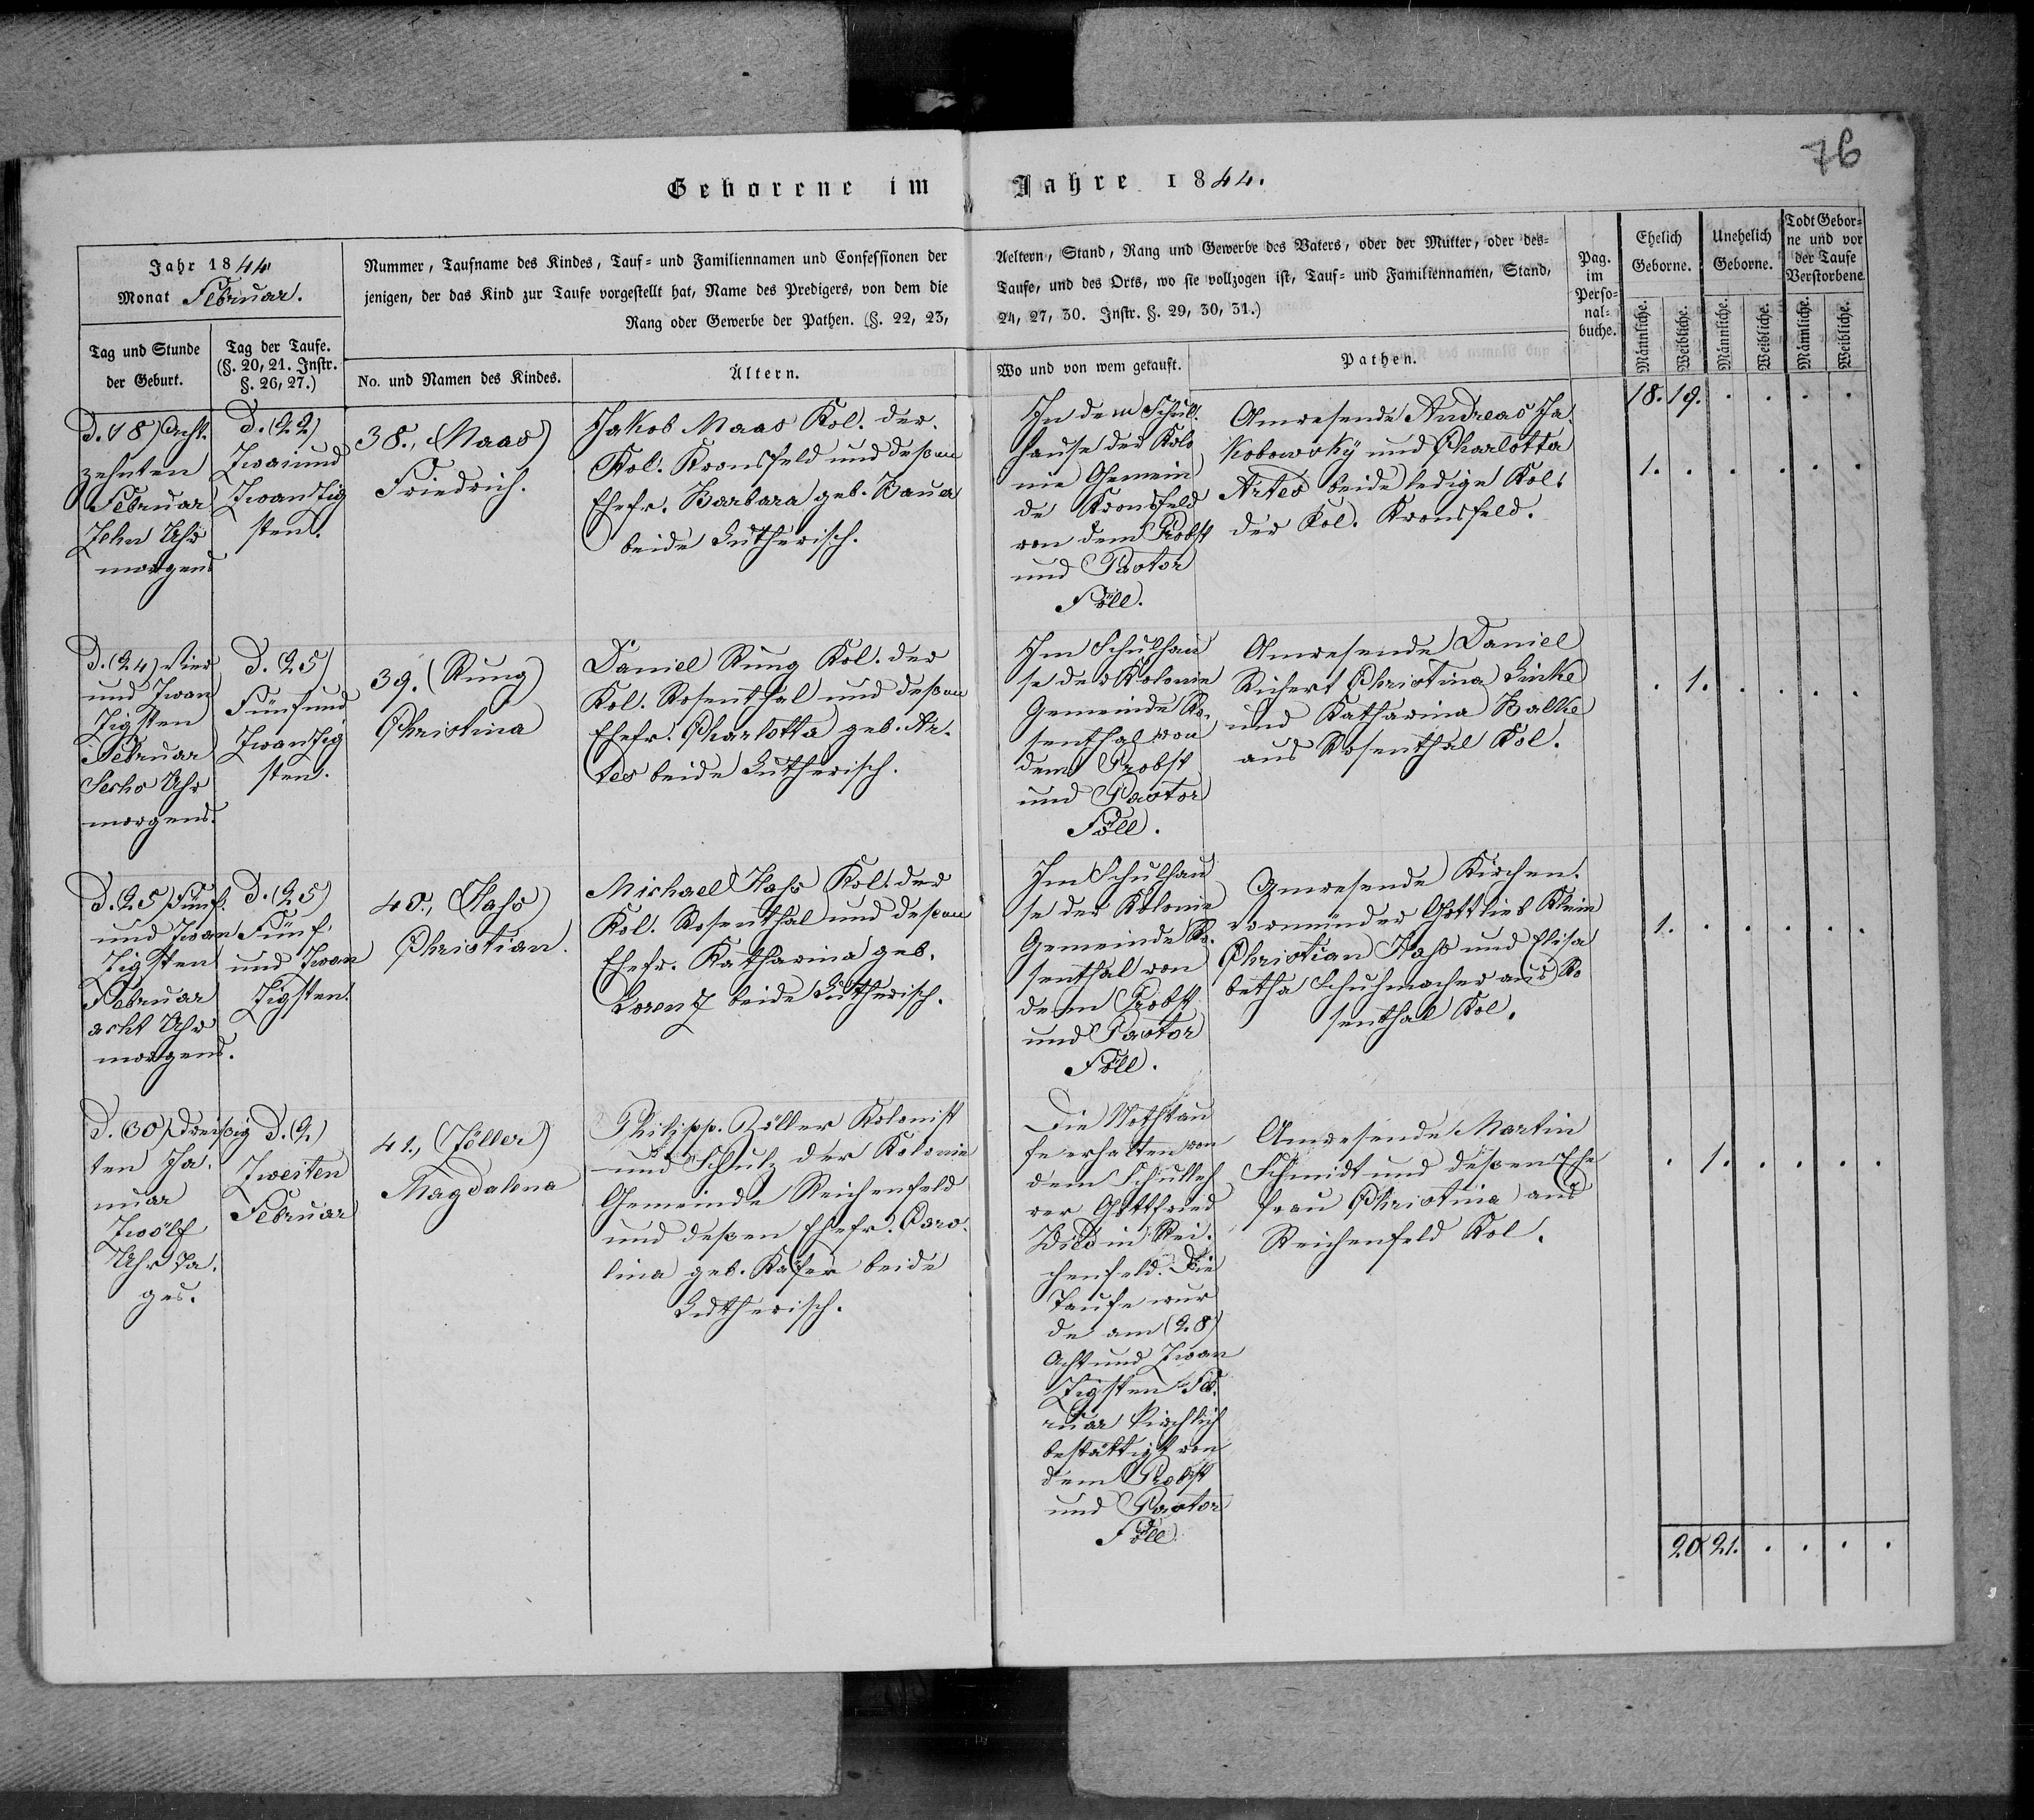 76
Geborene im Jahre 1844.
Jahr 1844
Monat Februar.
Nummer, Taufname des Kindes, Tauf- und Familiennamen und Confessionen der
jenigen, der das Kind zur Taufe vorgestellt hat, Name des Predigers, von dem die
Rang oder Gewerbe der Pathen. (§. 22, 23,
Aeltern, Stand, Rang und Gewerbe des Vaters, oder der Mutter, oder des-
Taufe, und des Orts, wo sie vollzogen ist, Tauf- und Familiennamen, Stand,
24, 27, 30. Instr. §. 29, 30, 31.)
Pag.
im
Perso-
nal-
buche.
Ehelich
Geborne.
Unehelich
Geborne.
Todt Gebor-
ne und vor
der Taufe
Verstorbene
Männliche.
Weibliche.
Männliche.
Weibliche.
Männliche.
Weibliche.
Tag und Stunde
der Geburt.
Tag der Taufe.
(§. 20, 21. Instr.
§. 26, 27.)
No. und Namen des Kindes.
Ältern.
Wo und von wem getauft.
Pathen.
18. 19. . . . .
D. (18) Acht-
zehnten
Februar
Zehn Uhr
morgens
D. (22)
Zwaiund
Zwanzig
sten.
38., (Maas)
Friedrich.
Jakob Maas Kol. der
Kol. Kronsfeld und deßen
Ehefr. Barbara geb. Bauer
beide Lutherisch.
In dem Schul-
hause der Kolo
nie Gemein
de Kronsfeld
von dem Probst
und Pastor
Föll.
Anwesende Andreas Ja-
kobowsky und Charlotta
Artes beide ledige Kol.
der Kol. Kronsfeld.
1. . . . . .
D. (24) Vier
und Zwan
zigsten
Februar
Sechs Uhr
morgens.
D. (25)
Fünfund
Zwanzig
sten.
39. (Rung)
Christina
Daniel Rung Kol. der
Kol. Rosenthal und deßen
Ehefr. Charlotta geb. Ar-
tes beide Lutherisch.
Im Schulhau
se der Kolonie
Gemeinde Ro-
senthal von
dem Probst
und Pastor
Föll.
Anwesende Daniel
Richert Christina Linke
und Katharina Balke
aus Rosenthal Kol.
. 1. . . . .
D. (25) Fünf-
und Zwan
zigsten
Februar
acht Uhr
morgens.
D. (25)
Fünf
und Zwan
zigsten.
40., (Haß)
Christian.
Michael Haß Kol. der
Kol. Rosenthal und deßen
Ehefr. Katharina geb.
Lorenz beide Lutherisch.
Im Schulhau
se der Kolonie
Gemeinde Ro-
senthal von
dem Probst
und Pastor
Föll.
Anwesende Kirchen-
vormünder Gottlieb Klein
Christian Haß und Elisa
betha Schuhmacher aus Ro
senthal Kol.
1. . . . . .
D. (30) Dreißig
ten Ja-
nuar
Zwölf
Uhr Ta-
ges.
D. (2)
Zweiten
Februar
41., (Zöller)
Magdalena
Philipp Zöller Kolonist
und Schulz der Kolonie
Gemeinde Reichenfeld
und deßen Ehefr. Caro-
lina geb. Käfer beide
Lutherisch.
Die Nothtau
fe erhalten von
dem Schulleh
rer Gottfried
Wild in Rei-
chenfeld. Die
Taufe wur
de am (28)
Achtund Zwan
zigsten Feb-
ruar kirchlich
bestättigt von
dem Probst
und Pastor
Föll.
Anwesende Martin
Schmidt und deßen Ehe
frau Christina aus
Reichenfeld Kol.
. 1. . . . .
20 21. . . . .